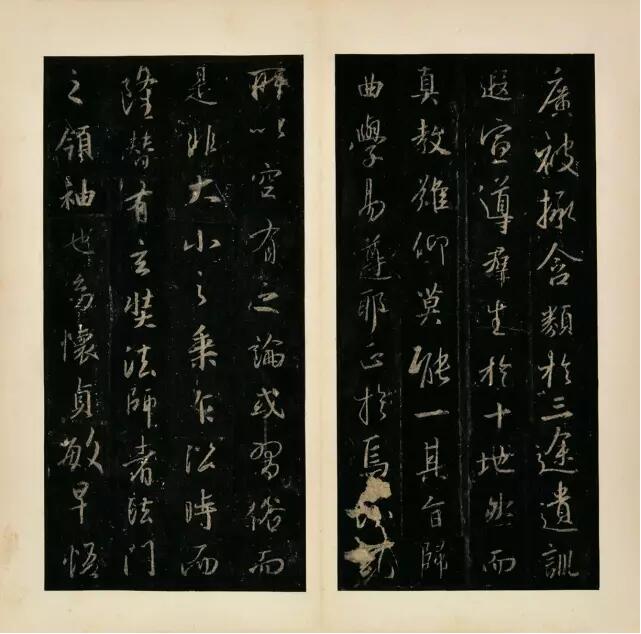 廣被拯含類於三途遺訓
遐宣導羣生於十地然而
真教難仰莫能一其旨歸
曲學易遵耶正於焉
所以空有之論或習俗而
是非大小之乘乍沿時而
隆替有玄奘法師者法門
之領袖也幼懷貞敏早悟